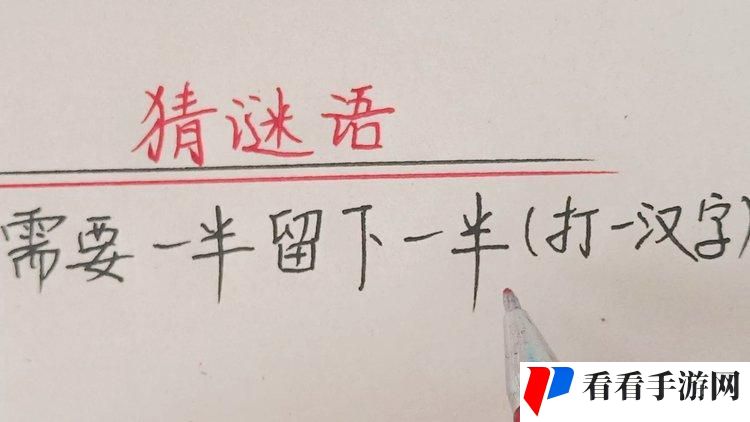 猜谜语
需要一半留下一半(打一汉字)
看看手游网